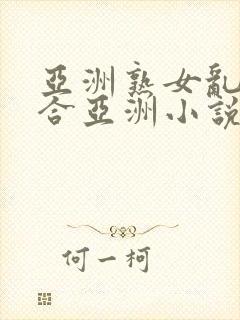 亞洲熟女亂
合亞洲小說
何一柯